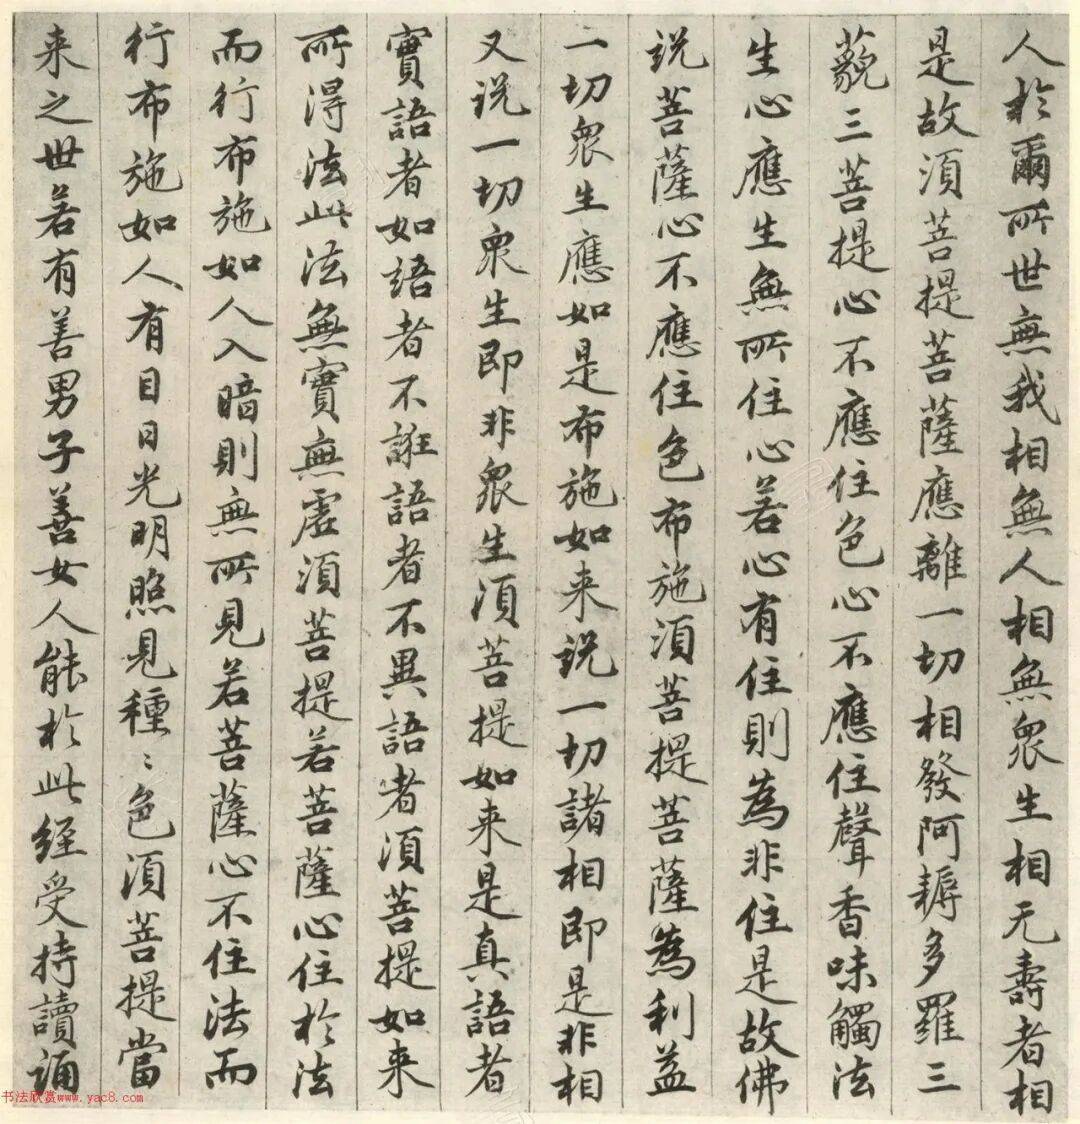 人於爾所世無我相無人相無衆生相无壽者相
是故須菩提菩薩應離一切相發阿耨多羅三
藐三菩提心不應住色心不應住聲香味觸法
生心應生無所住心若心有住則為非住是故佛
説菩薩心不應住色布施須菩提菩薩為利益
一切衆生應如是布施如来説一切諸相即是非相
又説一切衆生即非衆生須菩提如来是真語者
實語者如語者不誑語者不異語者須菩提如来
所得法此法無實無虛須菩提若菩薩心住於法
而行布施如人入暗則無所見若菩薩心不住法而
行布施如人有目日光明照見種〻色須菩提當
来之世若有善男子善女人能於此經受持讀誦
书法欣赏www.yac8.com